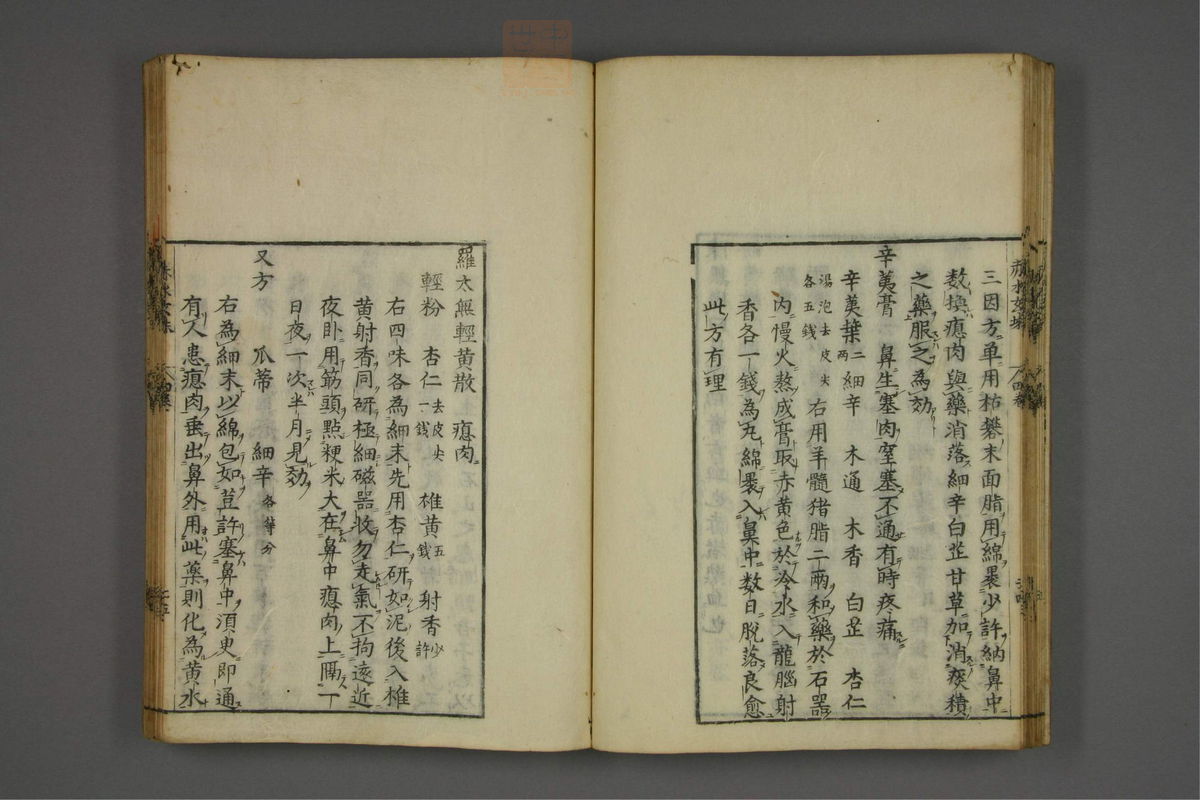 三因方単用枯礬末面脂用綿裹少許納鼻中
数換瘜肉與藥消落細辛白芷甘草加消痰積
之藥服之為効
辛夷膏 鼻生塞肉窒塞不通有時疼痛
辛荑葉二両細辛 木通 木香 白芷 杏仁
湯泡去皮尖各五錢 右用羊髓猪脂二兩和藥於石器
内慢火熬成膏取赤黄色於冷水入龍腦射
香各一錢為丸綿裹入鼻中数日脫落良愈
此方有理
羅太無輕黄散 瘜肉
輕粉 杏仁一錢去皮尖 椎黄五錢 射香少許
右四味各為細末先用杏仁研如泥後入椎
黄射香同研極細磁器收勿走氣不拘遠近
夜卧用筯頭點粳米大在鼻中瘜肉上隔一
日夜一次半月見効
又方 瓜蒂 細辛各等分
右為細末以綿包如荳許塞鼻中湏臾即通
有人患瘜肉垂出鼻外用此藥則化為黄水